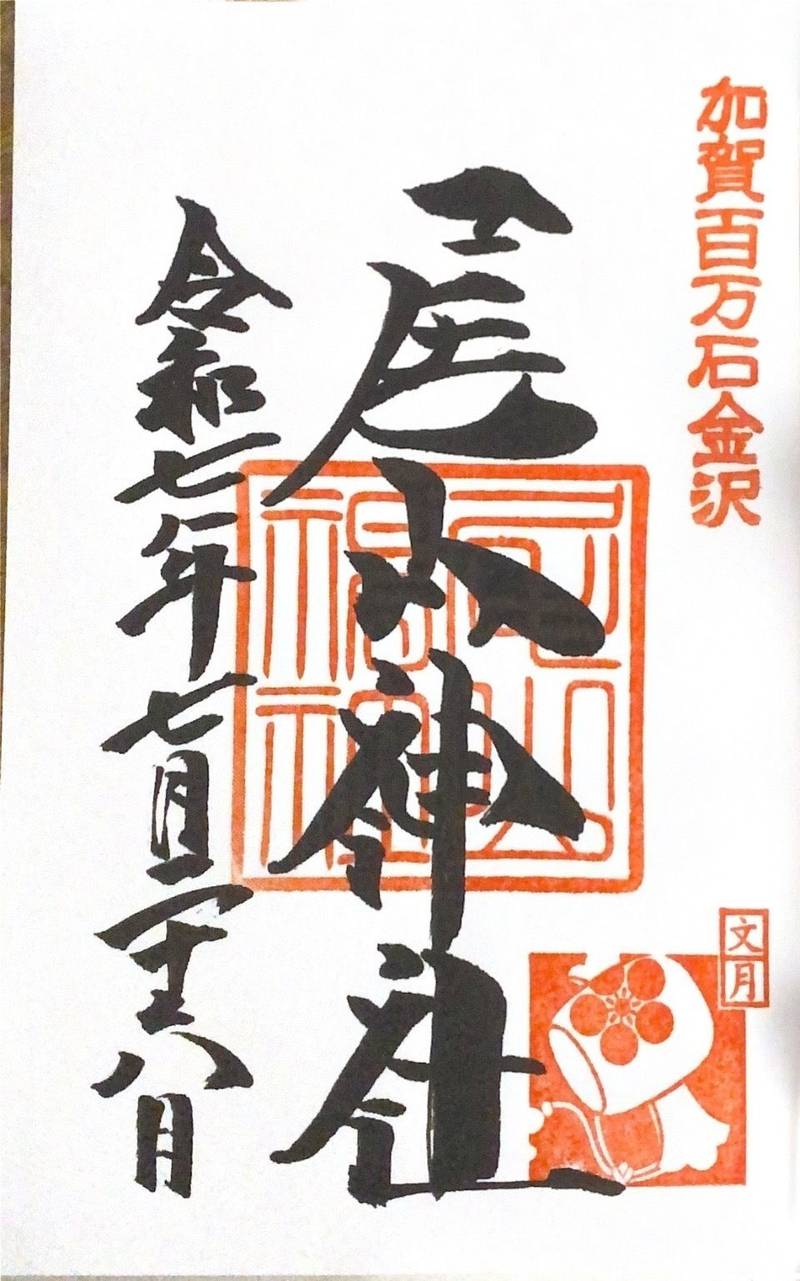 加賀百万石金沢
尾山神社
令和七年七月二十八日
文月